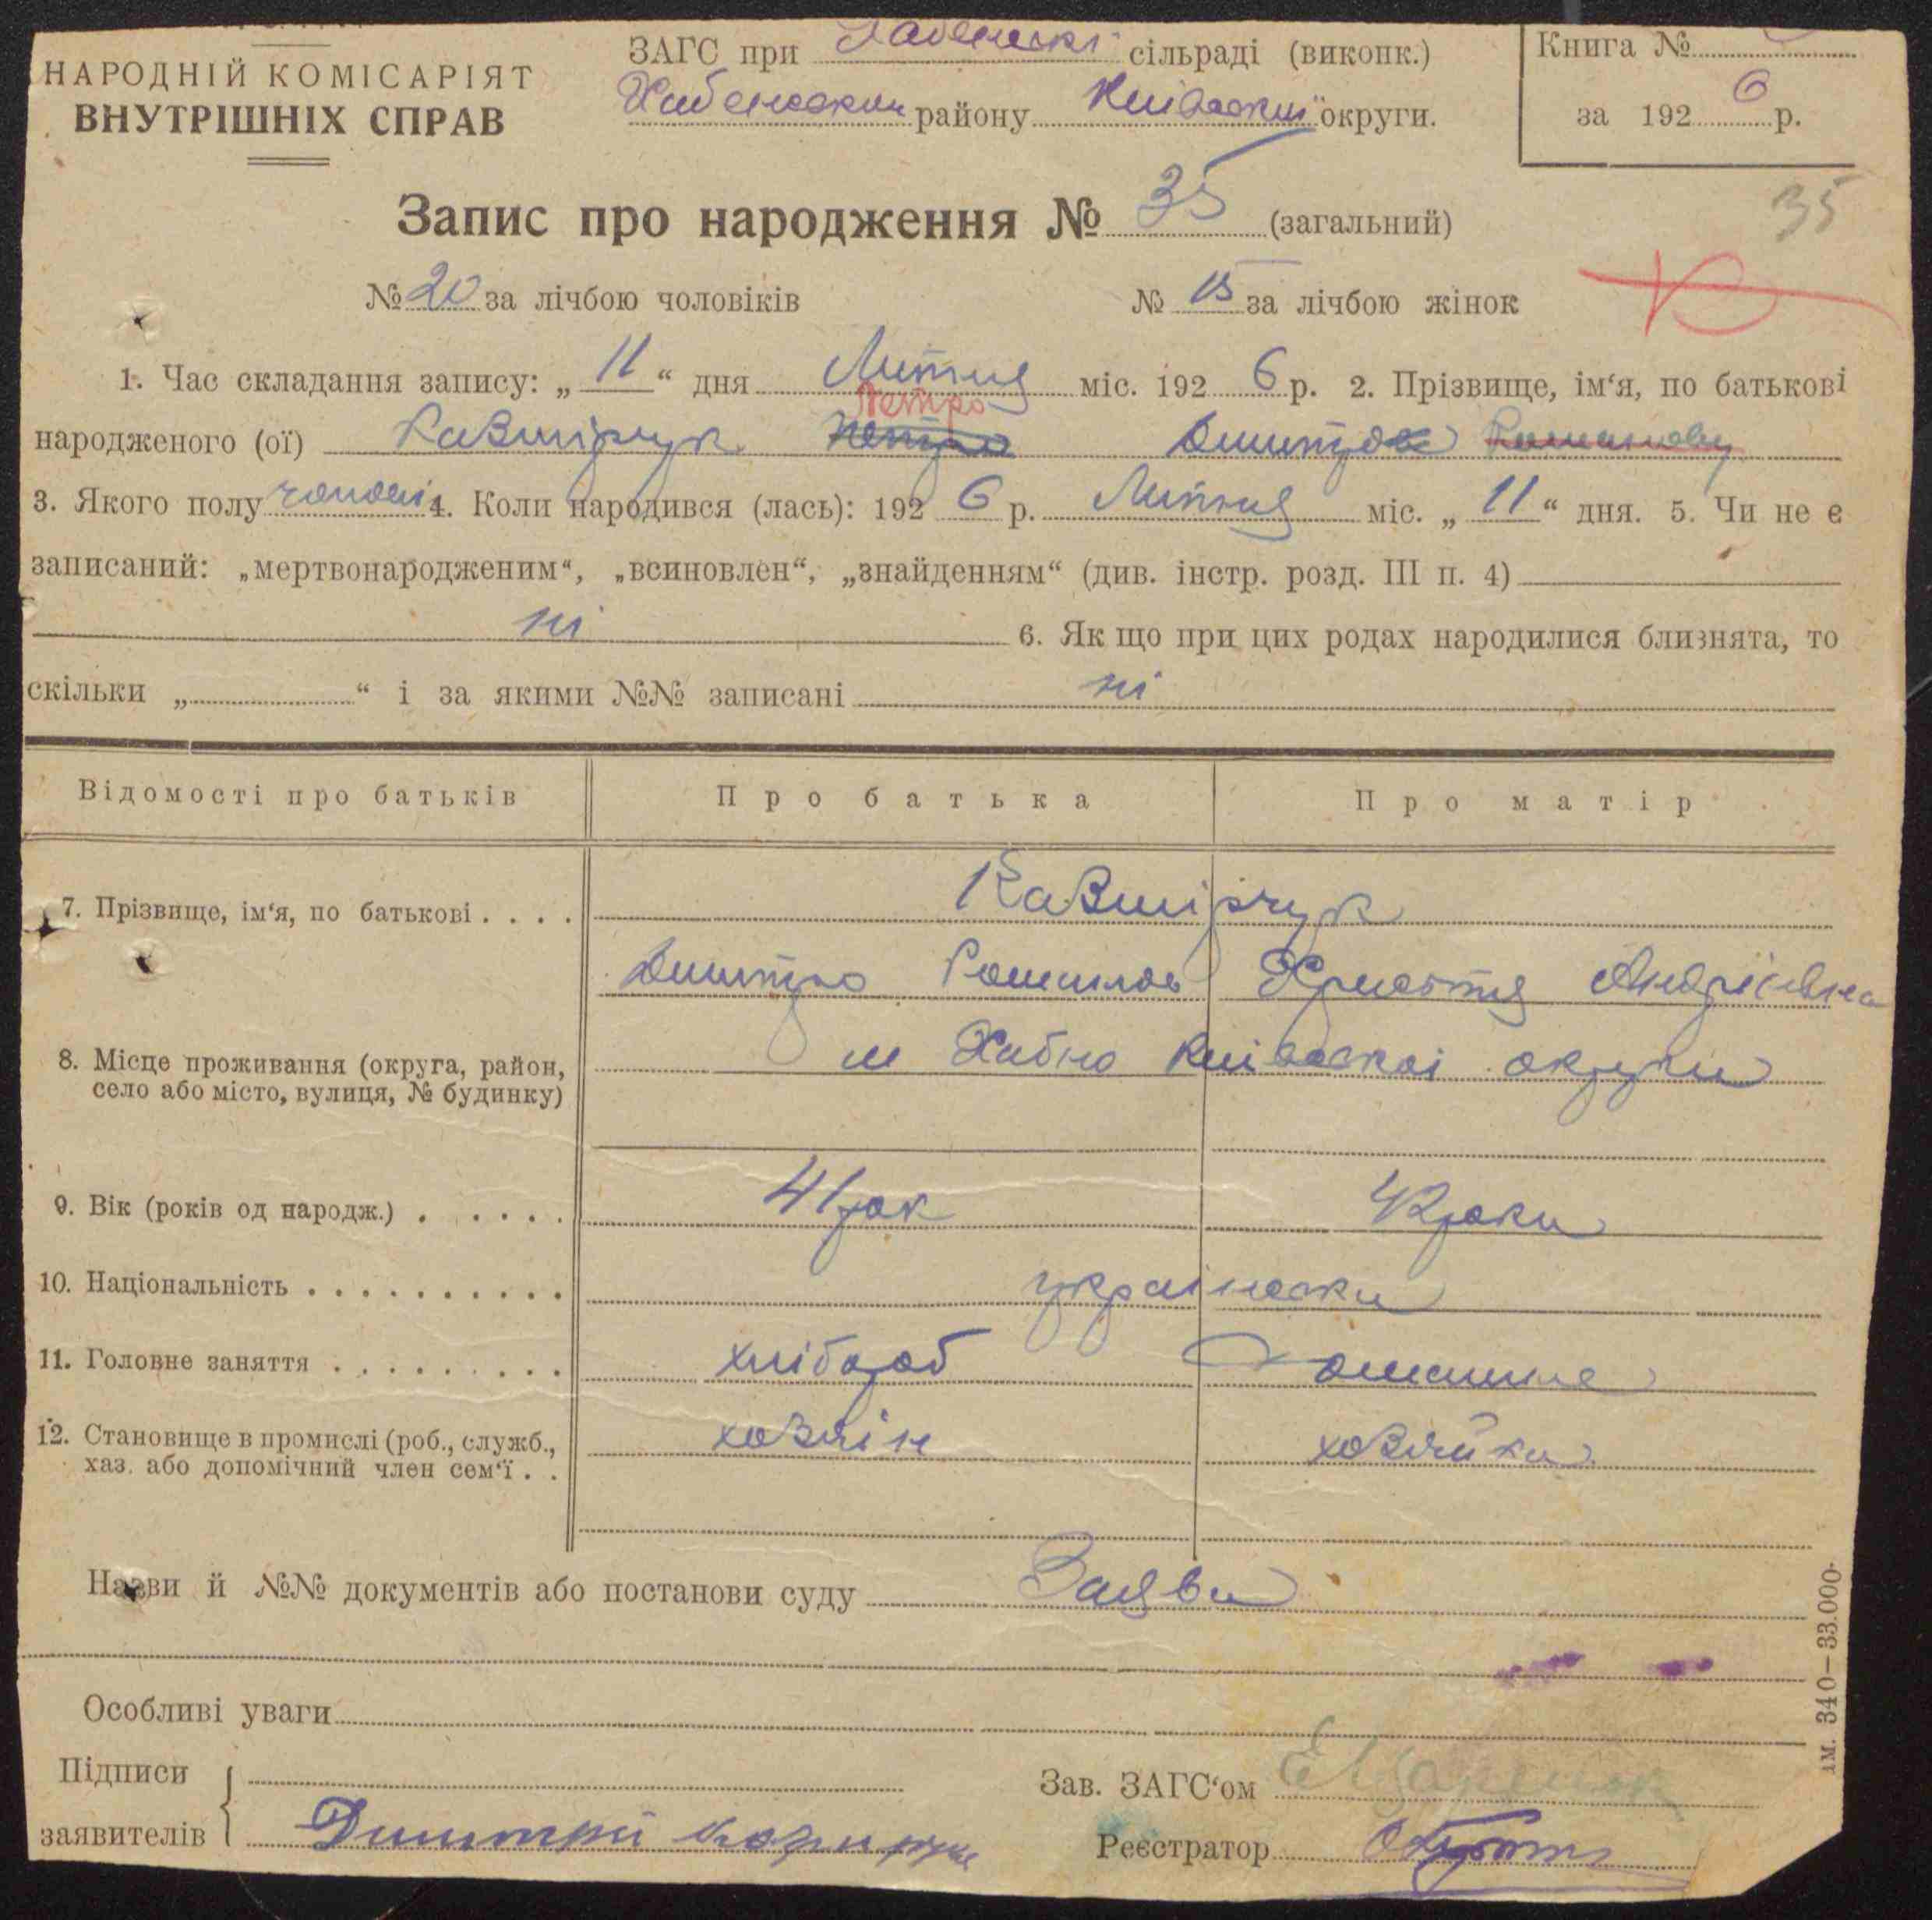 НАРОДНІЙ КОМІСАРІЯТ
ВНУТРІШНІХ СПРАВ
ЗАГС при Хабенскі сільраді (виконк.)
Хабенском району Київський округи.
Книга №
за 192 6 р.
Запис про народження № 35 (загальний)
35
№ 20 за лічбою чоловіків № 15 за лічбою жінок
1. Час складання запису: „ 11 “ дня Лютия міс. 192 6 р. 2. Прізвище, ім‘я, по батькові
Петро
народженого (ої) Казмірчук Петро Дмитров Романову
3. Якого полу чоловіч 4. Коли народився (лась): 192 6 р. Лютия міс. „ 11 “ дня. 5. Чи не є
записаний: „мертвонародженим“, „всиновлен“, „знайденням“ (див. інстр. розд. III п. 4)
ні 6. Як що при цих родах народилися близнята, то
скільки „ “ і за якими №№ записані ні
Відомості про батьків Про батька Про матір
7. Прізвище, ім‘я, по батькові . . . . Казмірчук
Дмитро Романов Христя Андріївна
8. Місце проживання (округа, район, село або місто, вулиця, № будинку) м Хабно Київскої округи
9. Вік (років од народж.) . . . . . 41 рок 42 роки
10. Національність . . . . . . . . . . українски
11. Головне заняття . . . . . . . . . хлібороб домашнє
12. Становище в промислі (роб., служб., хаз. або допомічний член сем‘ї . . хозяін хозяйка
Назви й №№ документів або постанови суду Заява
Особливі уваги
Підписи
заявителів Дмитрий Казмирчук
Зав. ЗАГС‘ом
Реєстратор
зм. 340—33.000.